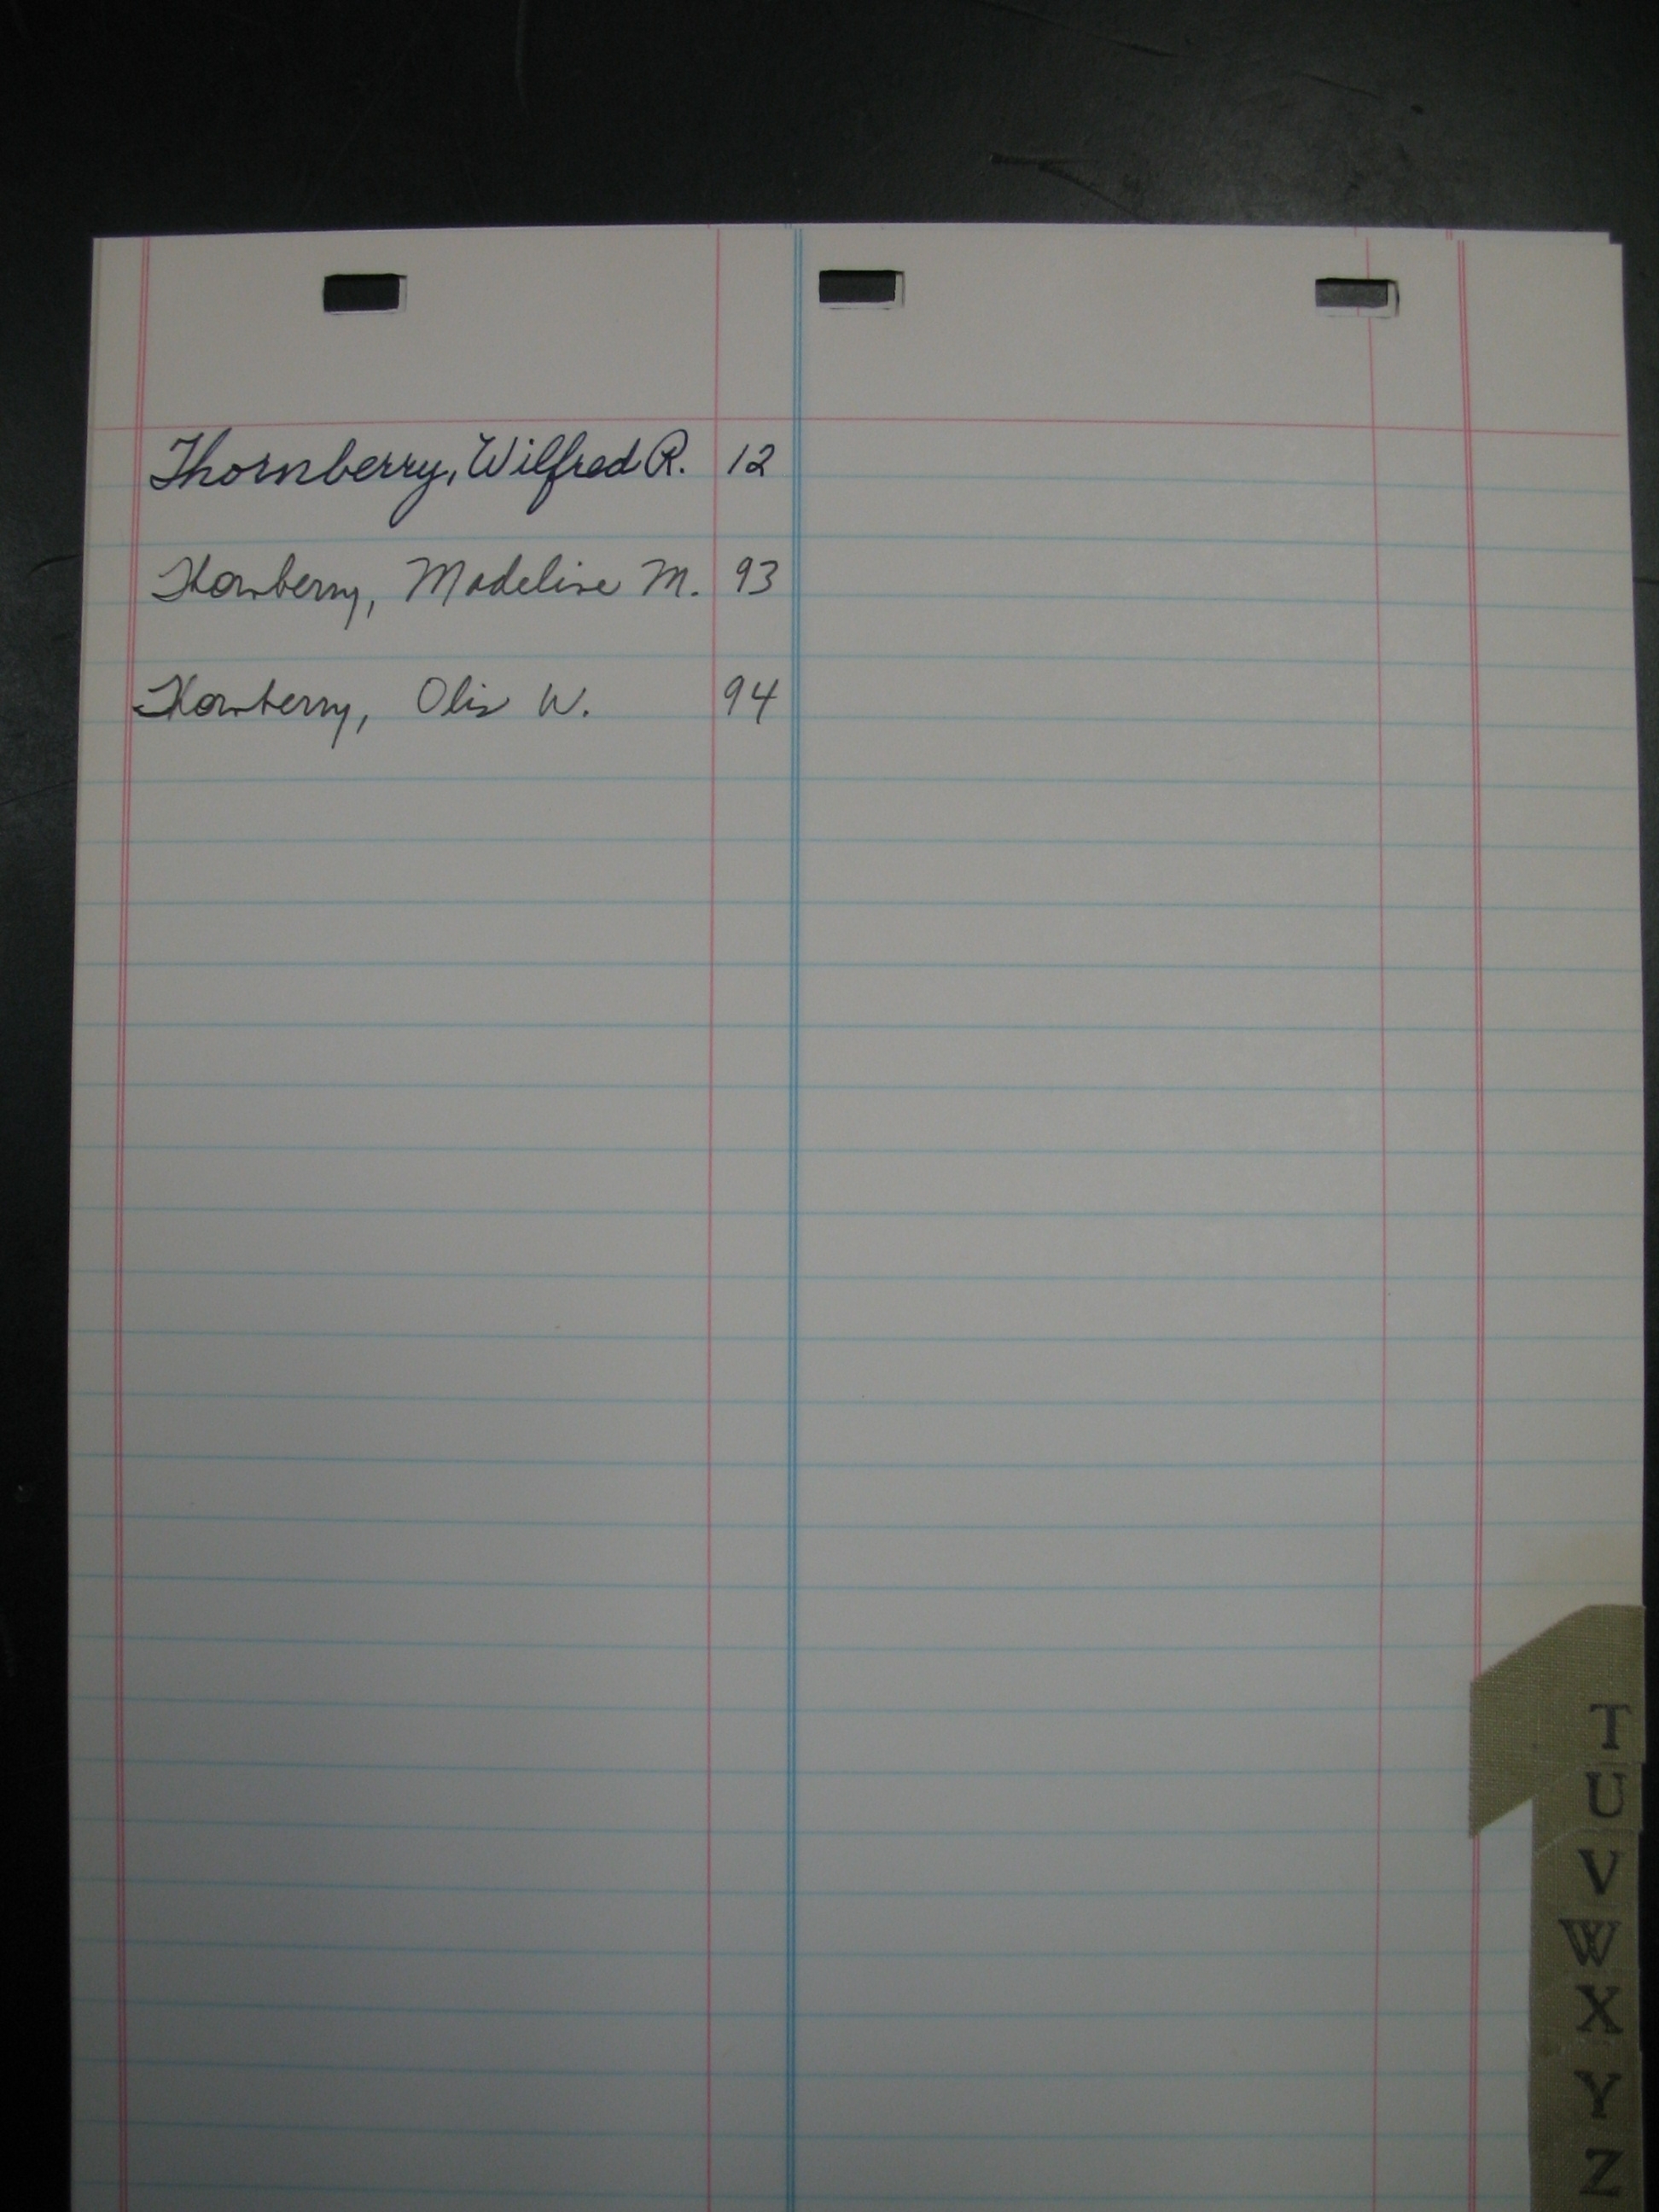 Thornberry, Wilfred R. 12
Thornberry, Madeline M. 93
Thornberry, Otis W. 94
T
U
V
W
X
Y
Z